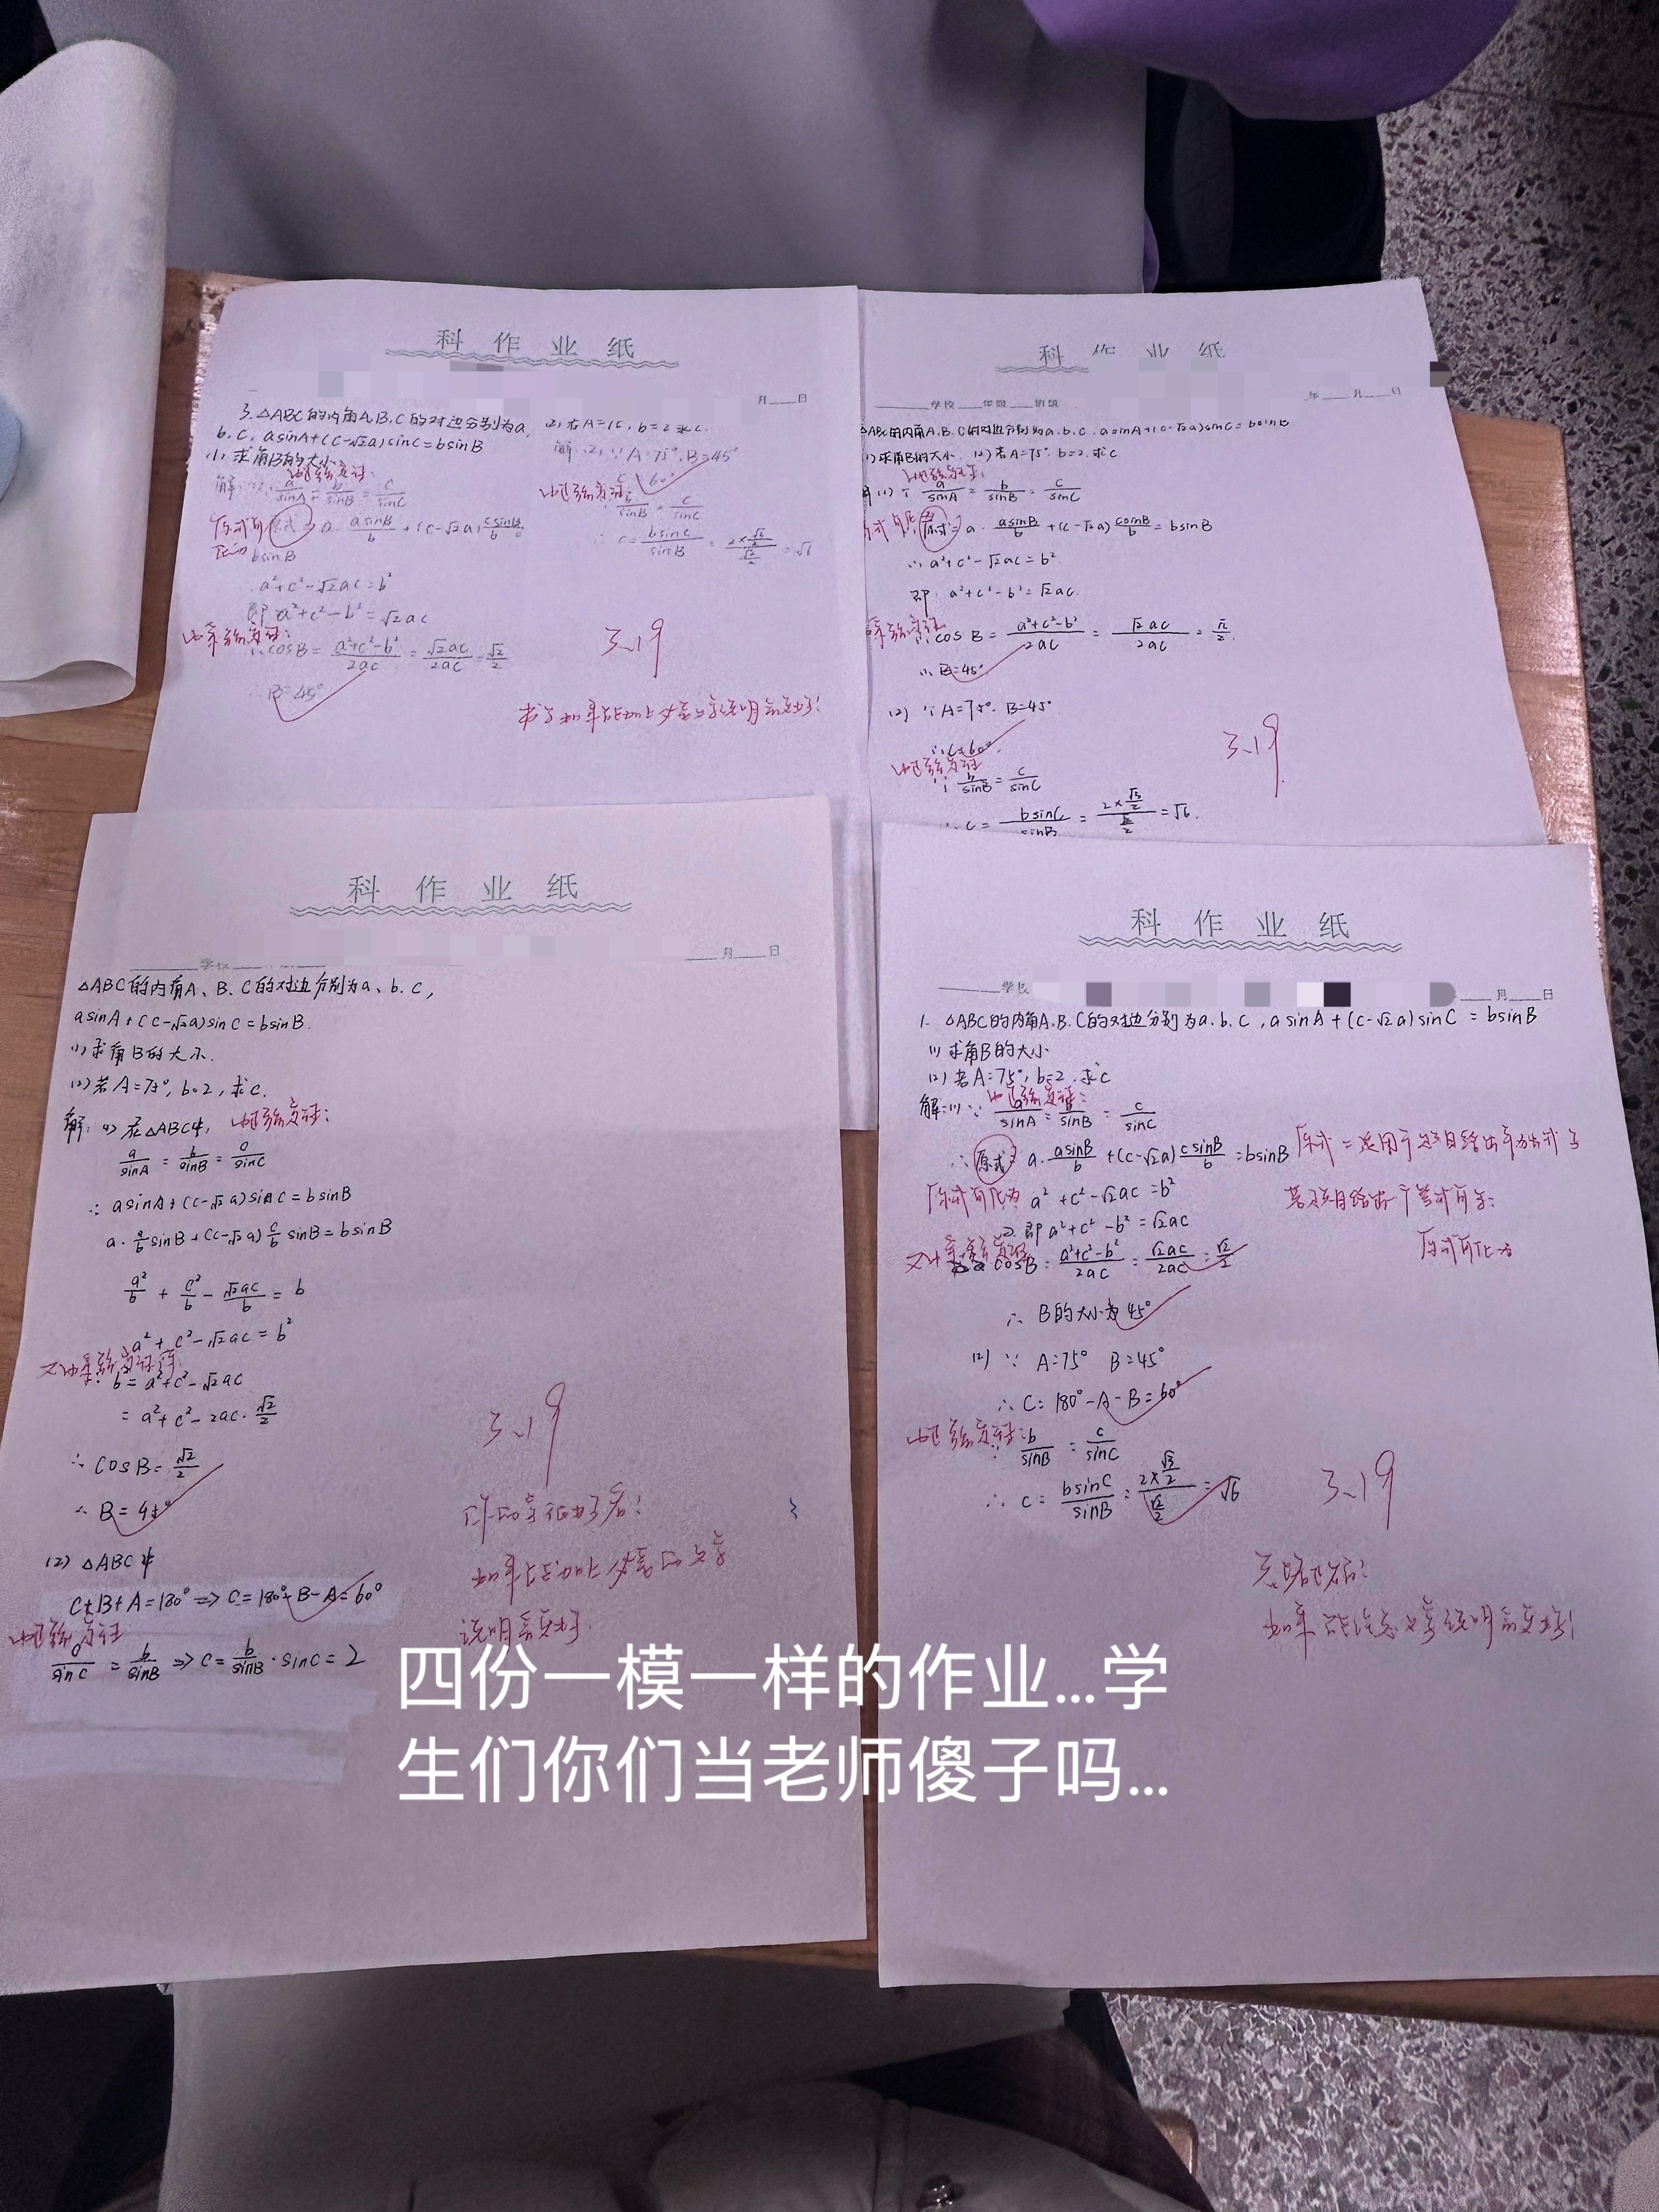 科 作 业 纸
月 日
3. △ABC的内角A,B,C的对边分别为a,
b.c, asinA+(c-√2a)sinC=bsinB
(1) 求角B的大小
由正弦定理:
解:(1)∵ a/sinA = b/sinB = c/sinC
原式可 原式= a·asinB/b +(c-√2a)csinB/b =
化为 bsinB
a²+c²-√2ac=b²
即 a²+c²-b²=√2ac
由余弦定理:
∴cosB= (a²+c²-b²)/2ac = √2ac/2ac = √2/2
∴B=45°
b=2 求c.
解:(2)∵A=75°,B=45°
60°
由正弦定理:
b/sinB = c/sinC
∴ c= bsinC/sinB = (2×√3/2)/(√2/2) =√6
3.19
科 作 业 纸
学校 年级 班级 年 月 日
△ABC的内角A.B.C的对边分别为a.b.c. asinA+(c-√2a)sinC=bsinB
(1)求角B的大小. (2)若A=75° b=2.求c
由正弦定理:
解(1)∵ a/sinA = b/sinB = c/sinC
原式= a· asinB/b +(c-√2a) csinB/b = bsinB
∴a²+c²-√2ac=b²
即 a²+c²-b²=√2ac.
余弦定理
∴cos B= (a²+c²-b²)/2ac = √2ac/2ac = √2/2.
∴B=45°
(2) ∵A=75°. B=45°
∴C=60°.
由正弦定理
∵ b/sinB = c/sinC
∴ c= bsinC/sinB = (2×√3/2)/(√2/2) =√6.
3.19
科 作 业 纸
学校 月 日
△ABC的内角A、B.C的对边分别为a、b.c,
asinA+(c-√2a)sinC=bsinB.
(1)求角B的大小.
(2)若A=75°,b=2,求c.
解:(1)在△ABC中, 由正弦定理:
a/sinA = b/sinB = c/sinC
∴ asinA+(c-√2a)sinC=bsinB
a· a/b sinB+(c-√2a) c/b sinB=bsinB
a²/b + c²/b - √2ac/b = b
a²+c²-√2ac=b²
又由余弦定理得:
b²=a²+c²-√2ac
=a²+c²-2ac·√2/2
∴ cosB= √2/2
∴ B=45°
(2) △ABC中
C+B+A=180°⇒C=180°-B-A=60°
由正弦定理
c/sinC = b/sinB ⇒c= b/sinB ·sinC=2
3.19
如果能加上必要的文字
说明就更好.
科 作 业 纸
学校 月 日
1. △ABC的内角A.B.C的对边分别为a.b.c, asinA+(c-√2a)sinC=bsinB
(1)求角B的大小
(2)若A=75°,b=2.求c
由正弦定理:
解:(1)∵ a/sinA = b/sinB = c/sinC
∴原式= a· asinB/b +(c-√2a) csinB/b =bsinB
原式可化为 a²+c²-√2ac=b²
即a²+c²-b²=√2ac
又由余弦定理
cosB= (a²+c²-b²)/2ac = √2ac/2ac = √2/2
∴ B的大小为45°
(2) ∵ A=75° B=45°
∴C=180°-A-B=60°
由正弦定理:
∵ b/sinB = c/sinC
∴ c= bsinC/sinB = (2×√3/2)/(√2/2) =√6
若题目给出一个等式可写:
原式可化为
3.19
四份一模一样的作业...学
生们你们当老师傻子吗...